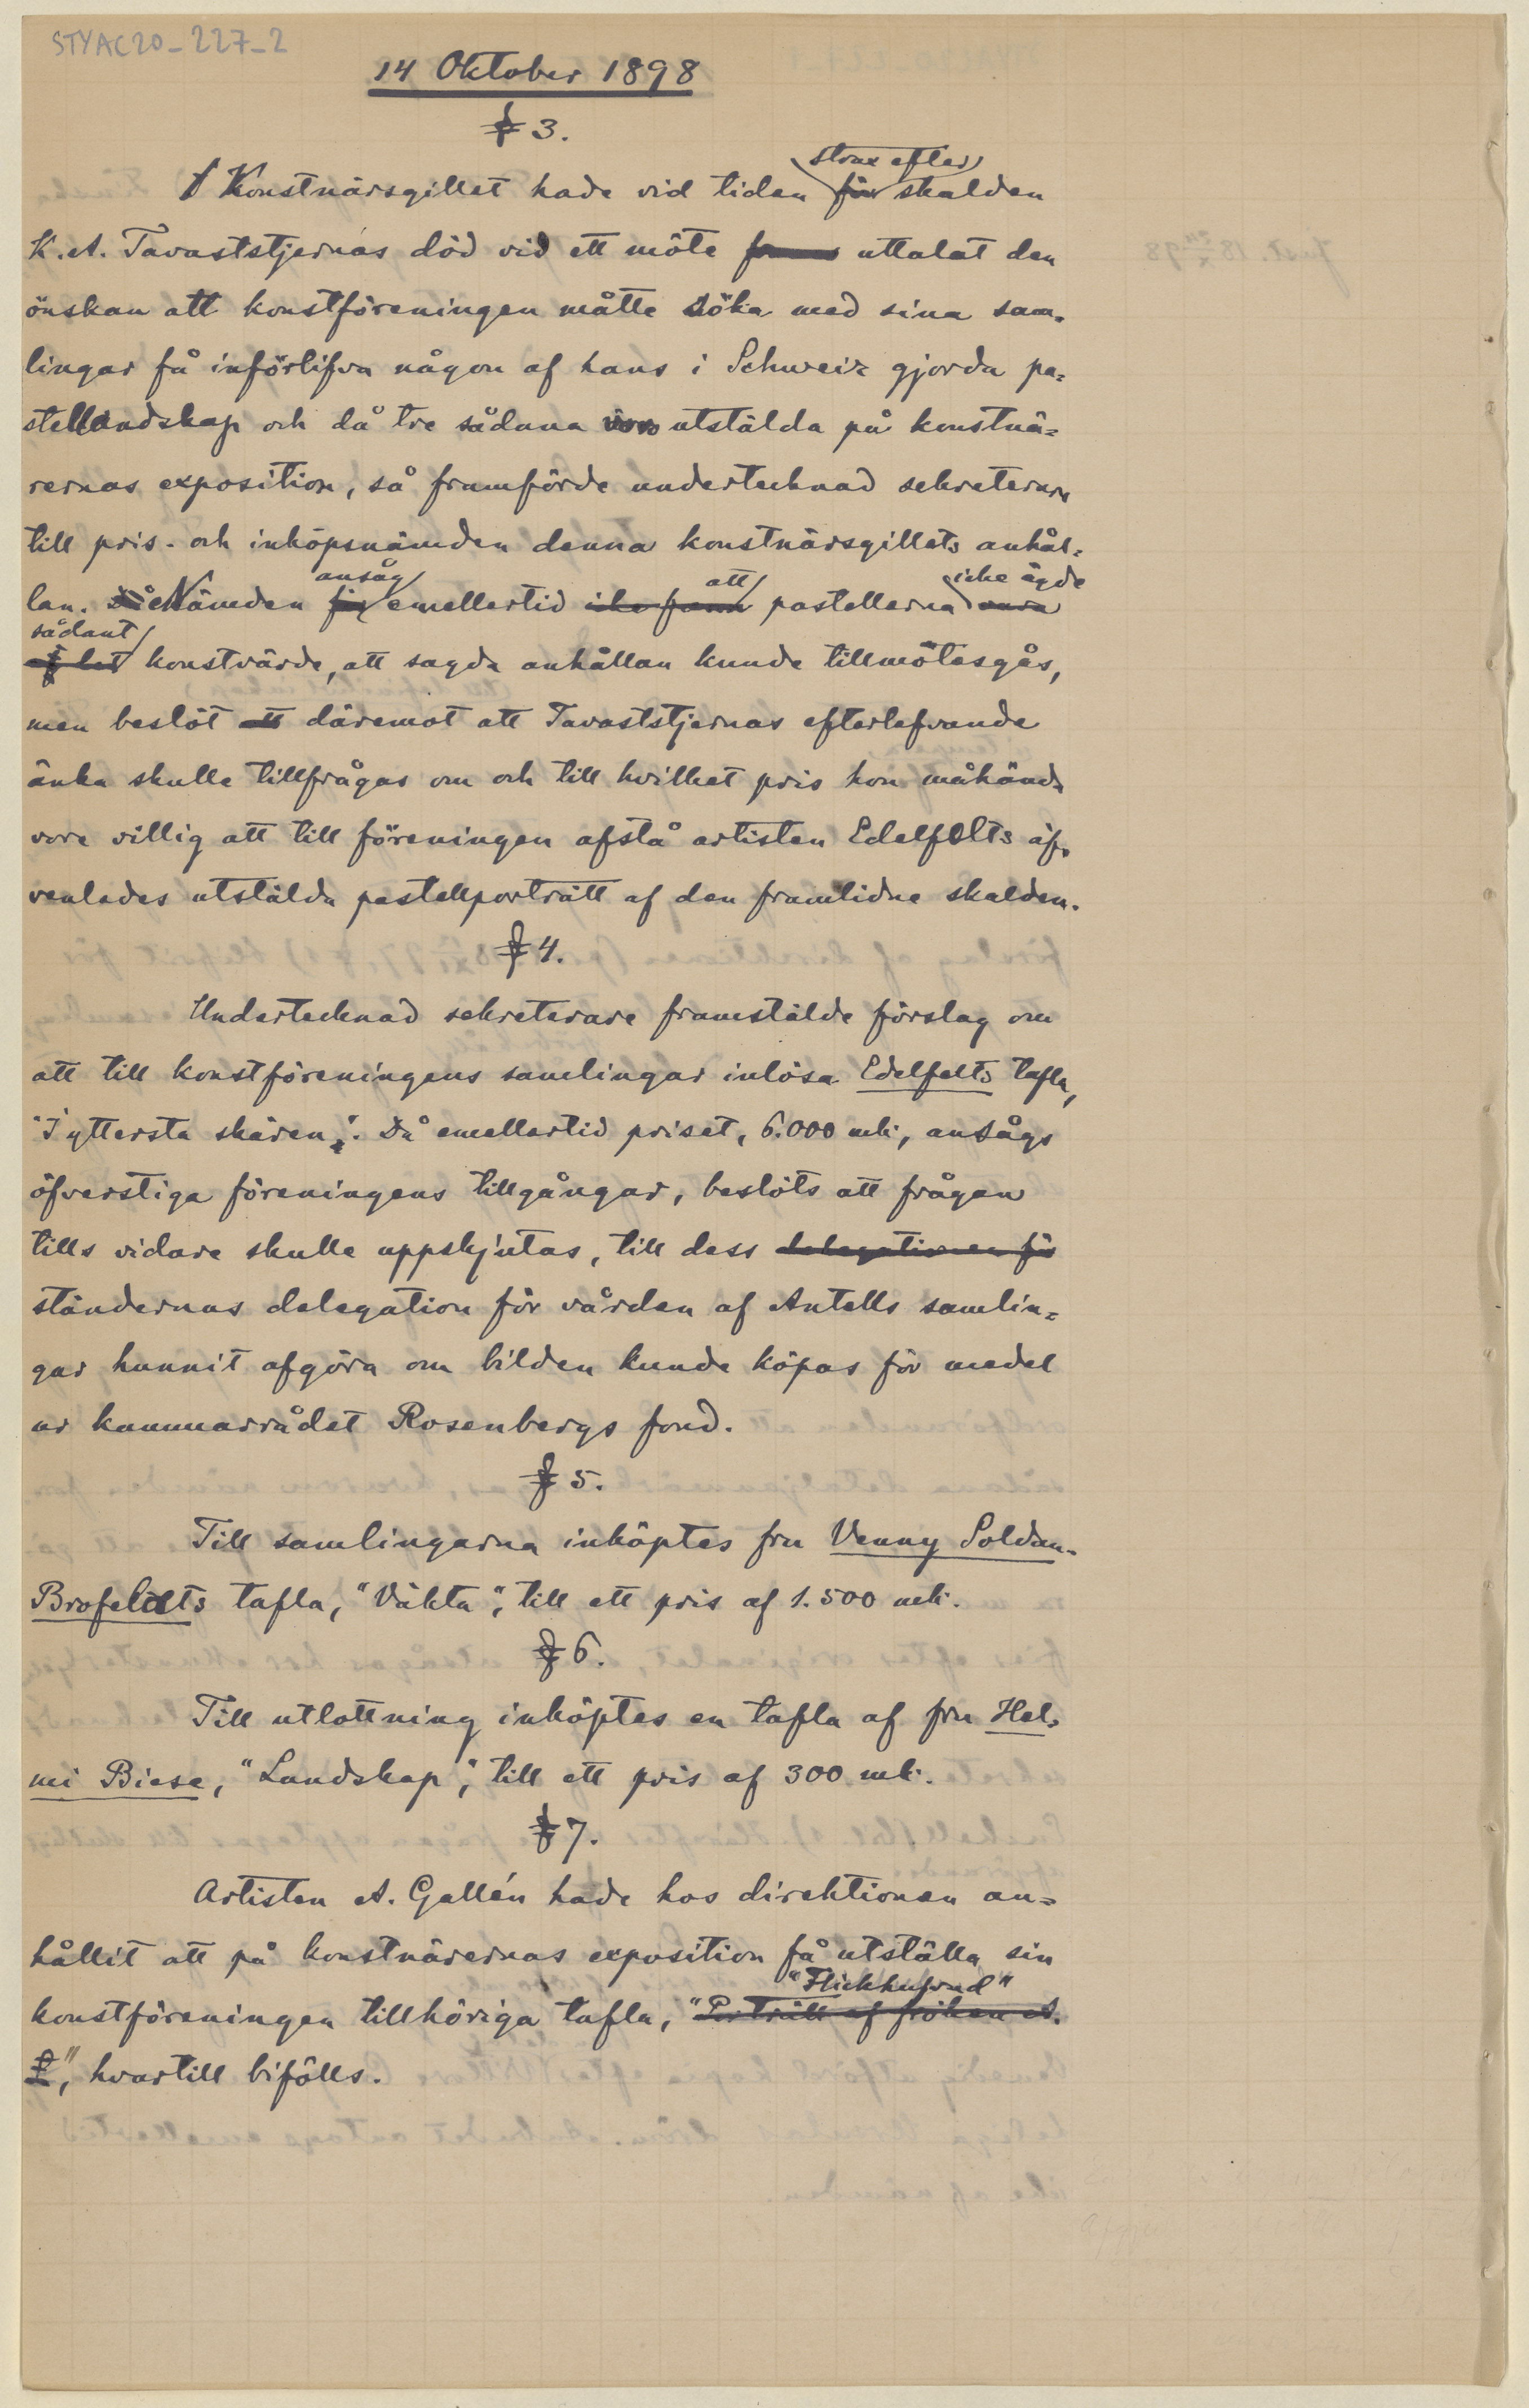 STYAC20_227_2
14 Oktober 1898
§ 3.
strax efter
Konstnärsgillet hade vid tiden för skalden
K. A. Tavaststjernas död vid ett möte uttalat den
önskan att konstföreningen måtte söka med sina sam=
lingar få införlifva någon af hans i Schweiz gjorda pa=
stellandskap och då tre sådana voro utstälda på konstnä=
rernas exposition, så framförde undertecknad sekreterare
till pris- och inköpsnämden denna konstnärsgillets anhål=
ansåg att icke ägde
lan. Nämden emellertid icke fann pastellerna vara
sådant
af det konstvärde, att sagda anhållan kunde tillmötesgås,
men beslöt att däremot att Tavaststjernas efterlefvande
änka skulle tillfrågas om och till hvilket pris hon måhända
vore villig att till föreningen afstå artisten Edelfelts äf=
venledes utstälda pastellporträtt af den framlidne skalden.
§ 4.
Undertecknad sekreterare framstälde förslag om
att till konstföreningens samlingar inlösa Edelfelts tafla,
"I yttersta skären". Då emellertid priset, 6.000 mk, ansågs
öfverstiga föreningens tillgångar, beslöts att frågan
tills vidare skulle uppskjutas, till dess delegationen för
ständernas delegation för vården af Antells samlin=
gar hunnit afgöra om bilden kunde köpas för medel
ur kammarrådet Rosenbergs fond.
§ 5.
Till samlingarna inköptes fru Venny Soldan-
Brofeldts tafla, "Väkta", till ett pris af 1.500 mk.
§ 6.
Till utlottning inköptes en tafla af fru Hel=
mi Biese, "Landskap", till ett pris af 300 mk.
§ 7.
Artisten A. Gallén hade hos direktionen an=
hållit att på konstnärernas exposition få utställa sin
"Flickhufvud"
konstföreningen tillhöriga tafla, "Porträtt af fröken A.
", hvartill bifölls.